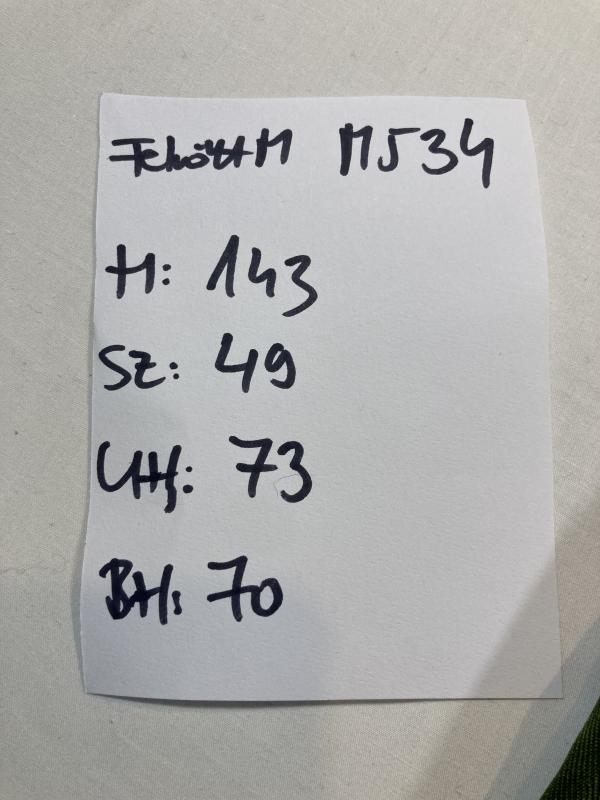 M534
H: 143
SZ: 49
UH: 73
BH: 70